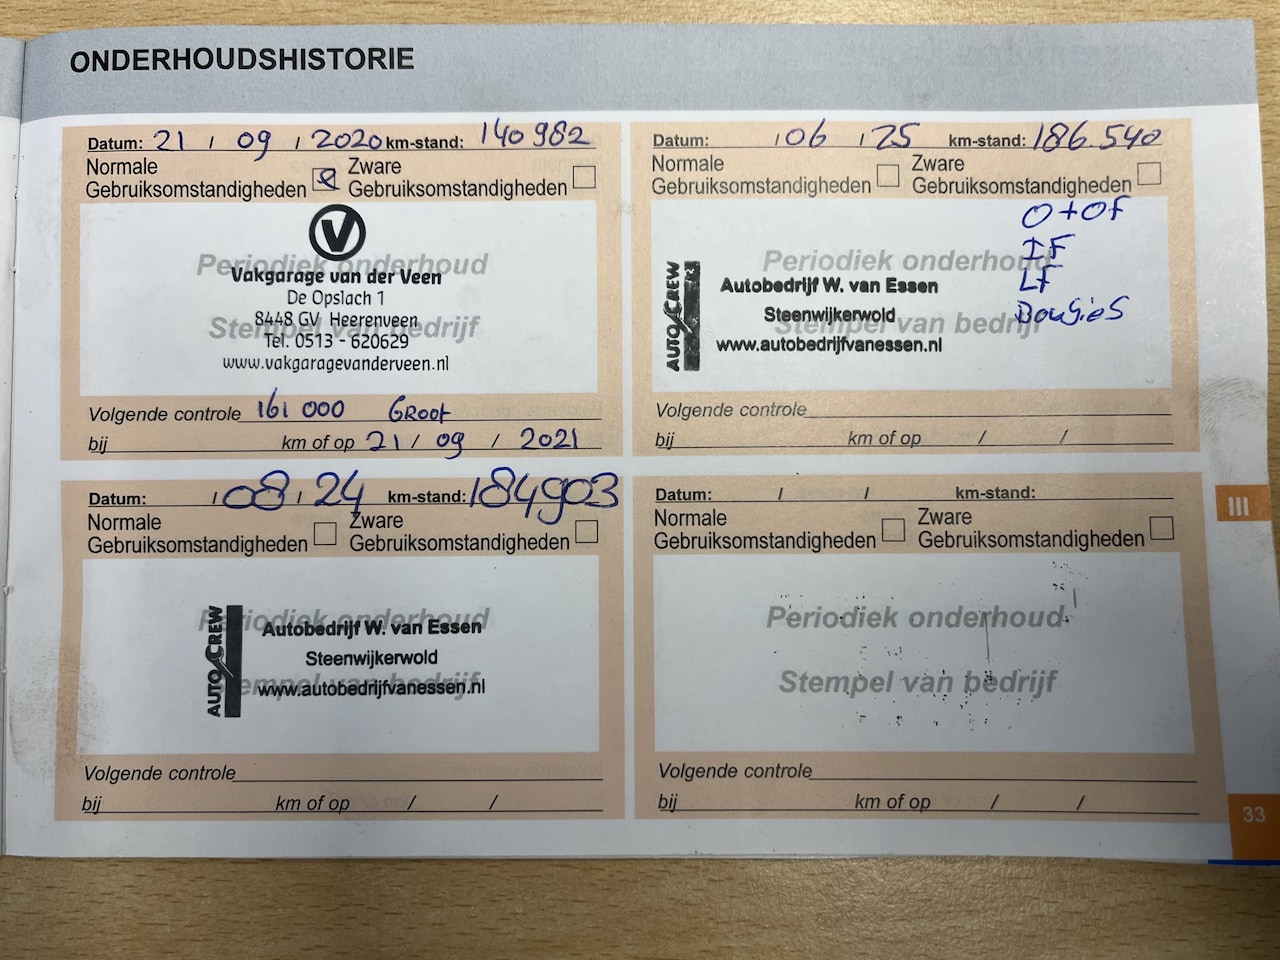 ONDERHOUDSHISTORIE
Datum: 21 / 09 / 2020 km-stand: 140 982
Normale Zware
Gebruiksomstandigheden Gebruiksomstandigheden
V
Periodiek onderhoud
Vakgarage van der Veen
De Opslach 1
8448 GV Heerenveen
Stempel van bedrijf
Tel. 0513 - 620629
www.vakgaragevanderveen.nl
Volgende controle 161 000 Groot
bij km of op 21 / 09 / 2021
Datum: / 06 / 25 km-stand: 186.540
Normale Zware
Gebruiksomstandigheden Gebruiksomstandigheden
O+OF
IF
LF
Bougies
Periodiek onderhoud
AUTO CREW
Autobedrijf W. van Essen
Steenwijkerwold
Stempel van bedrijf
www.autobedrijfvanessen.nl
Volgende controle
bij km of op / /
Datum: / 08 / 24 km-stand: 184903
Normale Zware
Gebruiksomstandigheden Gebruiksomstandigheden
Periodiek onderhoud
AUTO CREW
Autobedrijf W. van Essen
Steenwijkerwold
Stempel van bedrijf
www.autobedrijfvanessen.nl
Volgende controle
bij km of op / /
Datum: / / km-stand:
Normale Zware
Gebruiksomstandigheden Gebruiksomstandigheden
Periodiek onderhoud
Stempel van bedrijf
Volgende controle
bij km of op / /
III
33